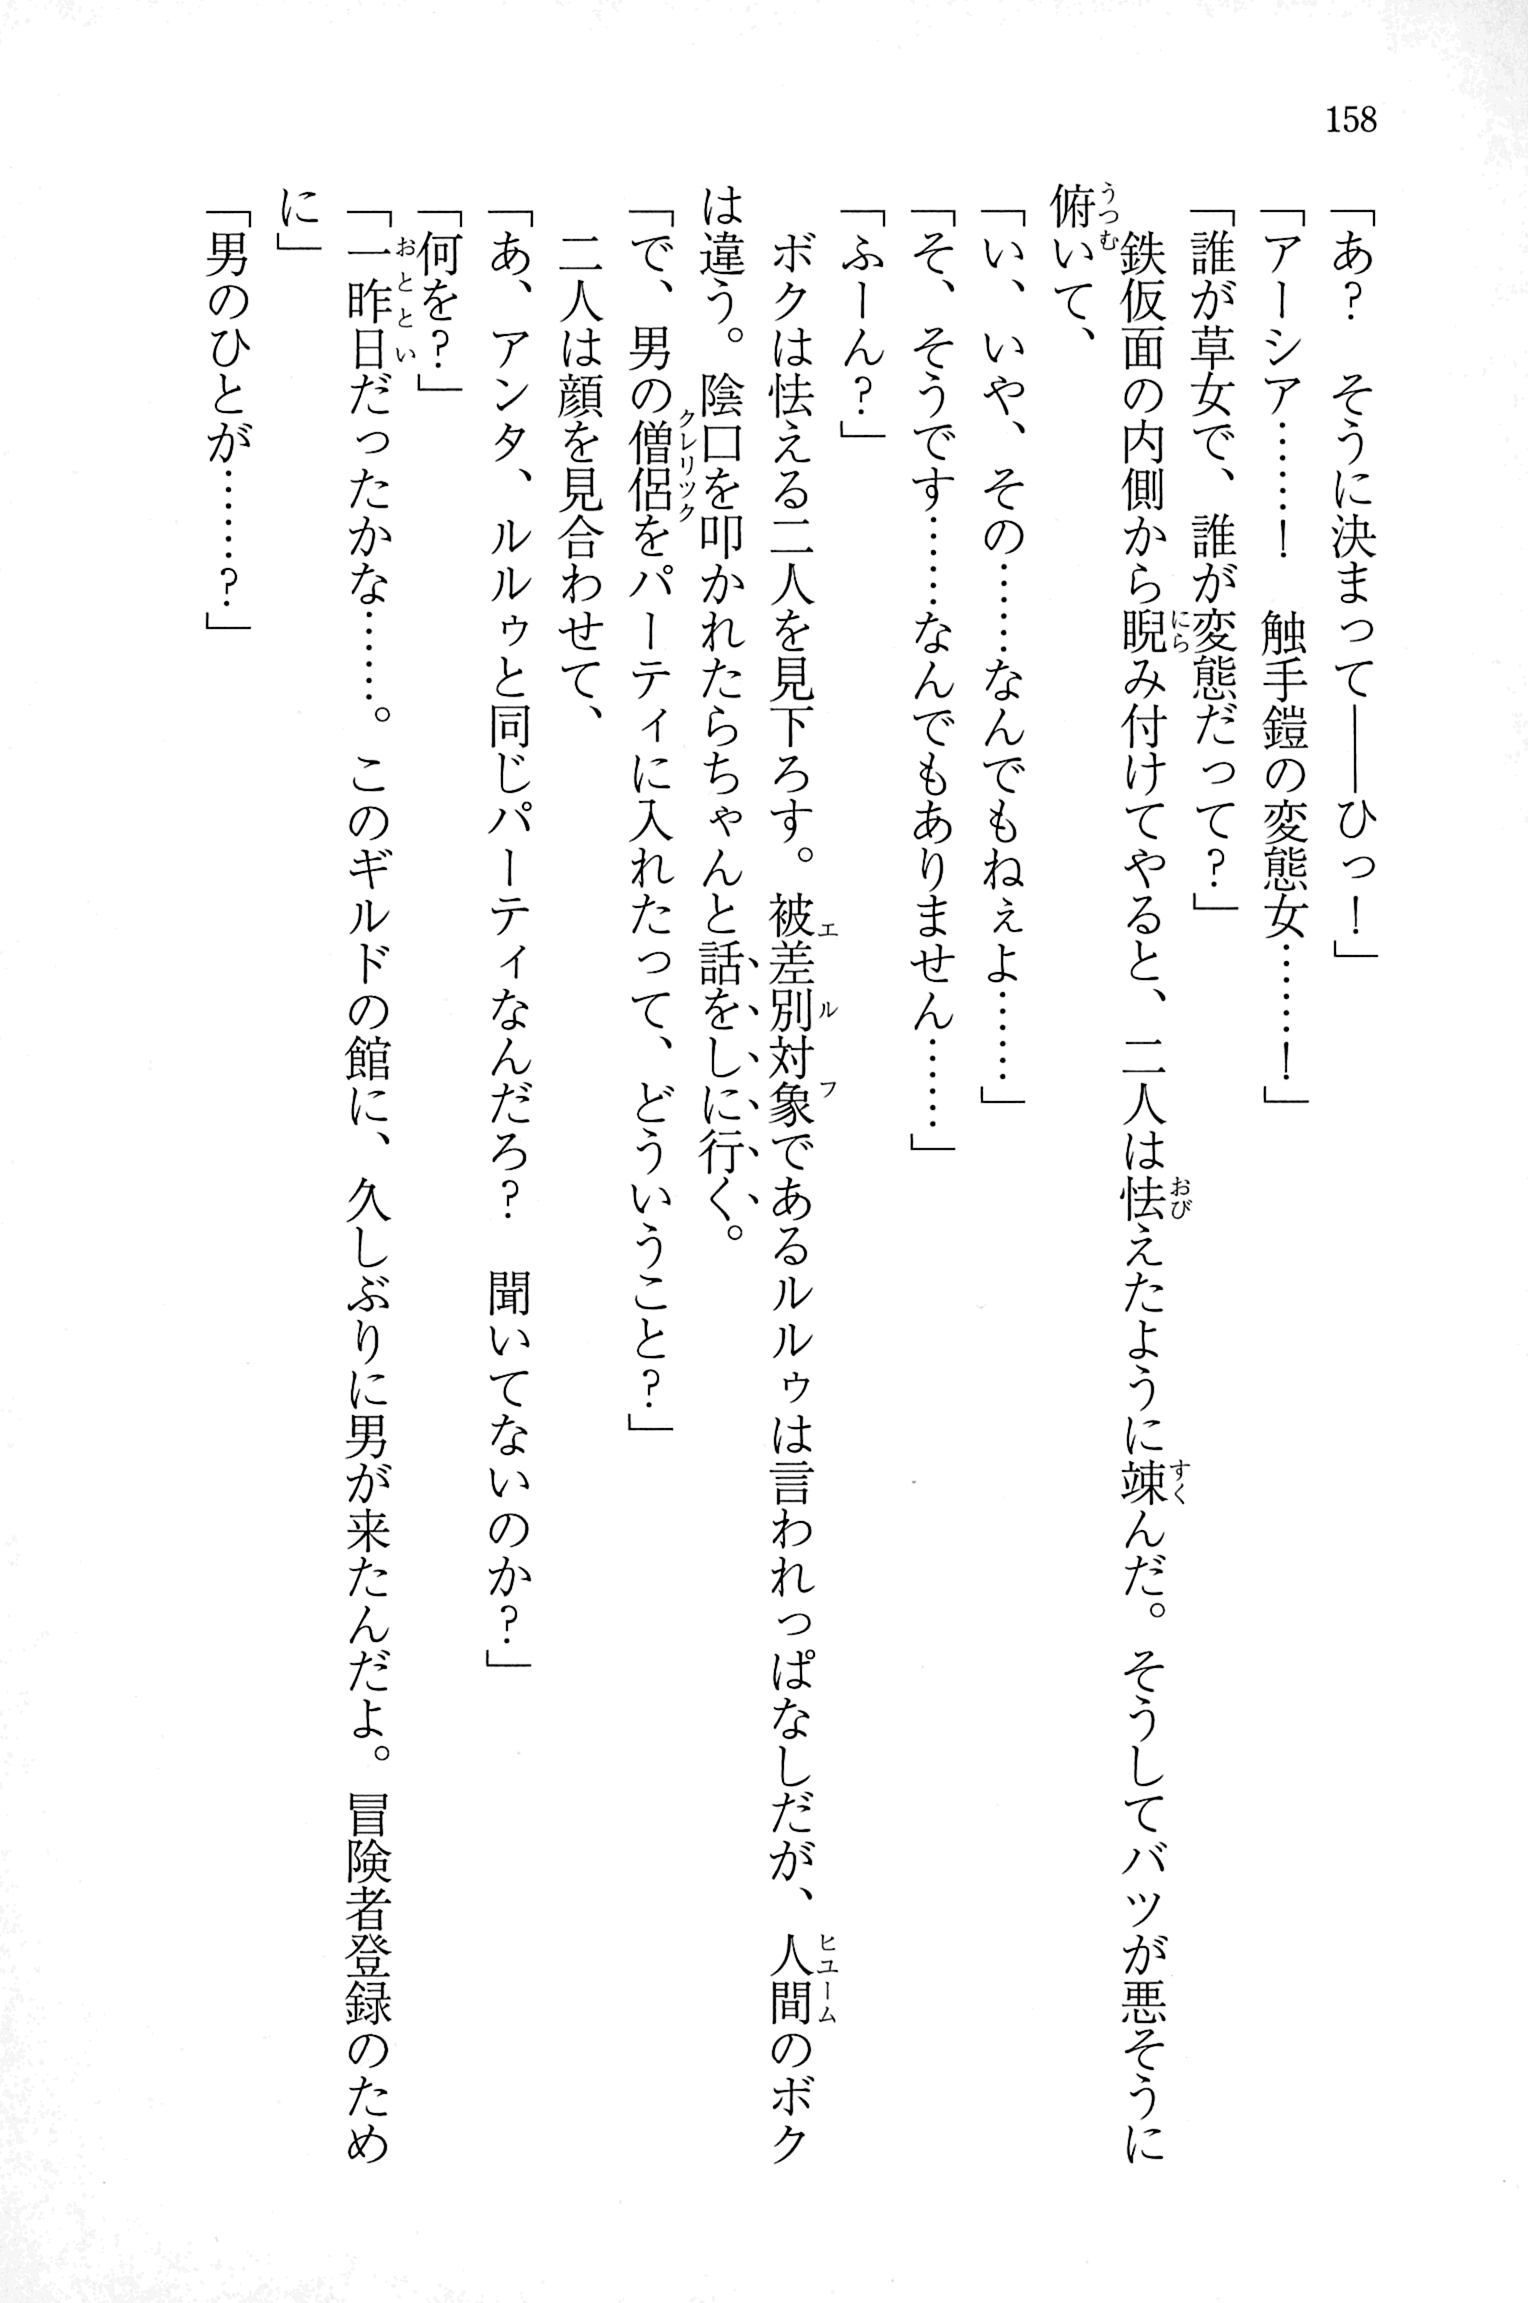 158
「あ？　そうに決まって――ひっ！」
「アーシア……！　触手鎧の変態女……！」
「誰が草女で、誰が変態だって？」
　鉄仮面の内側から睨み付けてやると、二人は怯えたように竦んだ。そうしてバツが悪そうに
俯いて、
「い、いや、その……なんでもねぇよ……」
「そ、そうです……なんでもありません……」
「ふーん？」
　ボクは怯える二人を見下ろす。被差別対象であるルルゥは言われっぱなしだが、人間のボク
は違う。陰口を叩かれたらちゃんと話をしに行く。
「で、男の僧侶をパーティに入れたって、どういうこと？」
　二人は顔を見合わせて、
「あ、アンタ、ルルゥと同じパーティなんだろ？　聞いてないのか？」
「何を？」
「一昨日だったかな……。このギルドの館に、久しぶりに男が来たんだよ。冒険者登録のため
に」
「男のひとが……？」